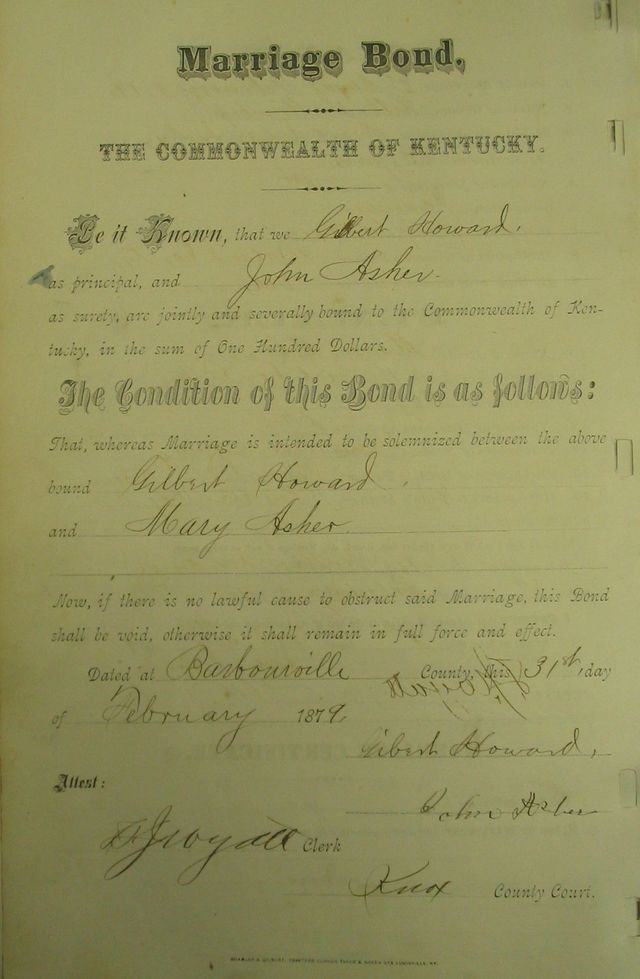 Marriage Bond.
THE COMMONWEALTH OF KENTUCKY.
Be it Known, that we Gilbert Howard.
as principal, and John Asher.
as surety, are jointly and severally bound to the Commonwealth of Ken-
tucky, in the sum of One Hundred Dollars.
The Condition of this Bond is as follows:
That, whereas Marriage is intended to be solemnized between the above
bound Gilbert Howard.
and Mary Asher
Now, if there is no lawful cause to obstruct said Marriage, this Bond
shall be void, otherwise it shall remain in full force and effect.
Dated at Barbourville County, this 31st, day
of February 1879
Gilbert Howard,
Attest:
John Asher
Clerk
Knox County Court.